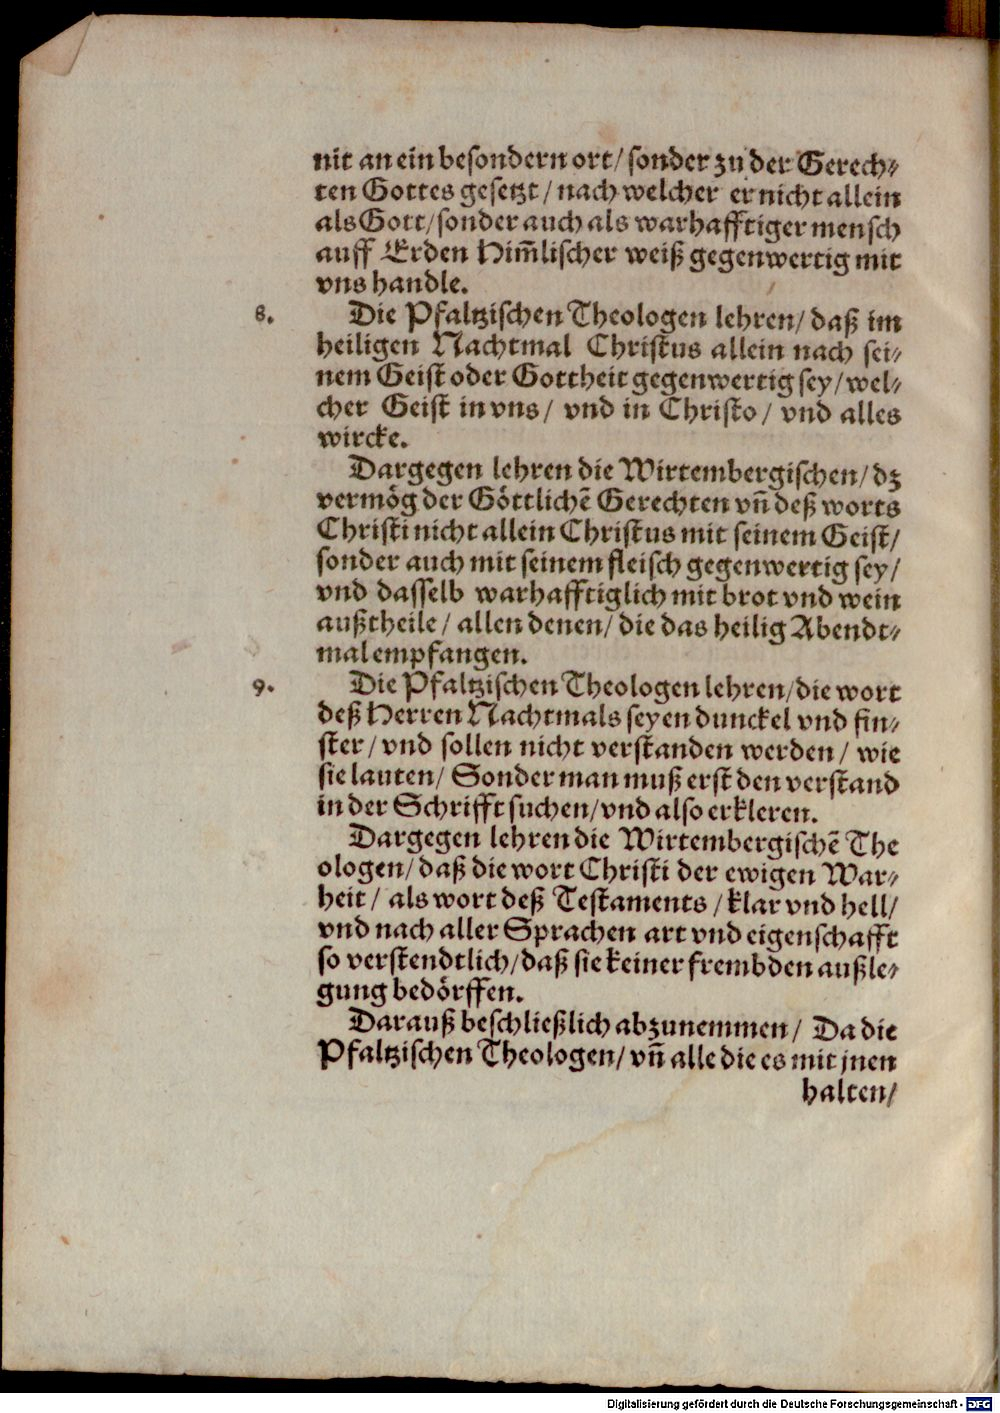 nit an ein besondern ort/ sonder zu der Gerech⸗
ten Gottes gesetzt / nach welcher er nicht allein
als Gott/sonder auch als warhafftiger mensch
auff Erden Him̃lischer weiß gegenwertig mit
vns handle.
8. Die Pfaltzischen Theologen lehren/ daß im
heiligen Nachtmal Christus allein nach sei⸗
nem Geist oder Gottheit gegenwertig sey/ wel⸗
cher Geist in vns/ vnd in Christo/ vnd alles
wircke.
Dargegen lehren die Wirtembergischen/ dz
vermög der Göttlichẽ Gerechten vñ deß worts
Christi nicht allein Christus mit seinem Geist/
sonder auch mit seinem fleisch gegenwertig sey/
vnd dasselb warhafftiglich mit brot vnd wein
außtheile/ allen denen/ die das heilig Abendt⸗
mal empfangen.
9. Die Pfaltzischen Theologen lehren/die wort
deß Herren Nachtmals seyen dunckel vnd fin⸗
ster/ vnd sollen nicht verstanden werden/ wie
sie lauten/ Sonder man muß erst den verstand
in der Schrifft suchen/vnd also erkleren.
Dargegen lehren die Wirtembergischẽ The
ologen/ daß die wort Christi der ewigen War⸗
heit/ als wort deß Testaments / klar vnd hell/
vnd nach aller Sprachen art vnd eigenschafft
so verstendtlich/daß sie keiner frembden außle⸗
gung bedörffen.
Darauß beschließlich abzunemmen/ Da die
Pfaltzischen Theologen/ vñ alle die es mit jnen
halten/
Digitalisierung gefördert durch die Deutsche Forschungsgemeinschaft - DFG